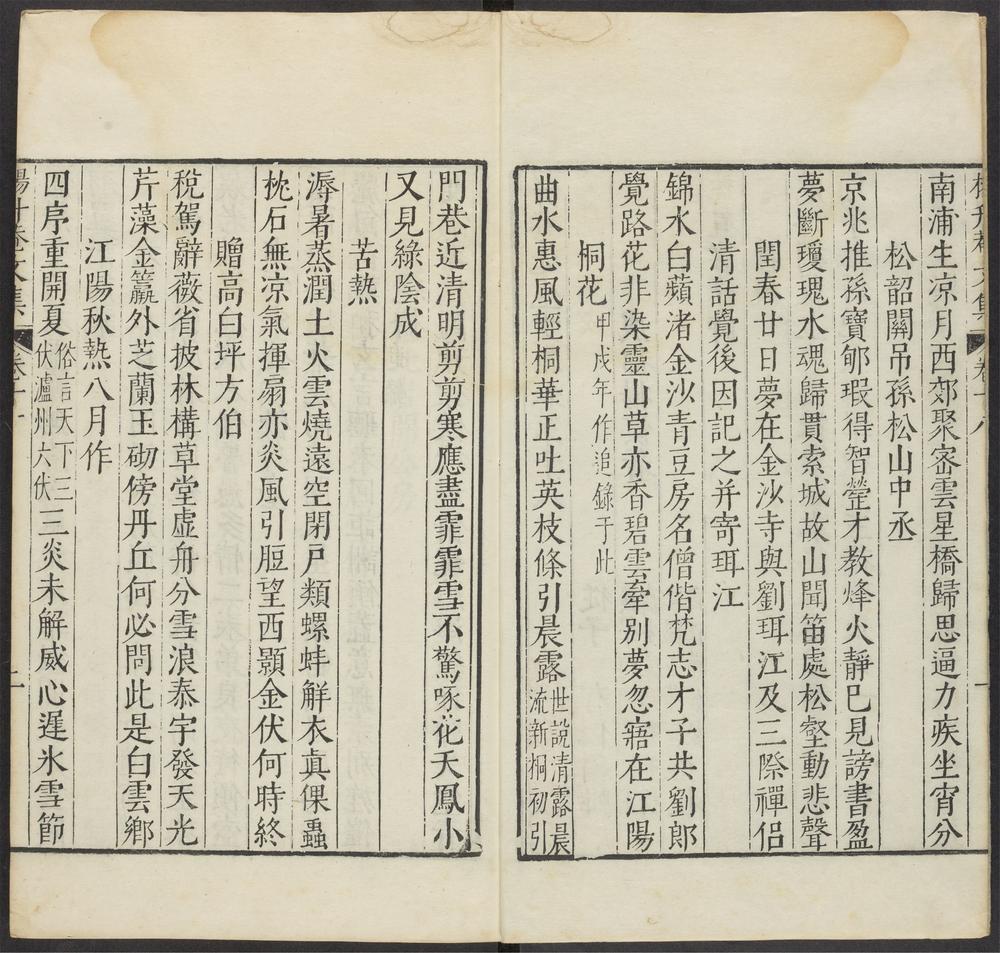 南浦生凉月西郊聚密雲星橋歸思逼力疾坐宵分
松韶關吊孫松山中丞
京兆推孫寶郇瑕得智罃才教烽火靜已見謗書盈
夢斷瓊瑰水魂歸貫索城故山聞笛處松壑動悲聲
閏春廿日夢在金沙寺與劉珥江及三際禪侶
清話覺後因記之并寄珥江
錦水白蘋渚金沙青豆房名僧偕梵志才子共劉郎
覺路花非染靈山草亦香碧雲牽别夢忽寤在江陽
桐花甲戌年作追錄于此
曲水惠風輕桐華正吐英枝條引晨露世說清露晨流新桐初引
門巷近清明剪剪寒應盡霏霏雪不驚啄花天鳳小
又見綠陰成
苦熱
溽暑蒸潤土火雲燒遠空閉戸類螺蚌觧衣真倮蟲
枕石無凉氣揮扇亦炎風引脰望西顥金伏何時終
贈高白坪方伯
稅駕辭薇省披林構草堂虛舟分雪浪泰宇發天光
芹藻金籯外芝蘭玉砌傍丹丘何必問此是白雲鄉
江陽秋熱八月作
四序重開夏俗言天下三伏瀘州六伏三炎未解威心遲氷雪節